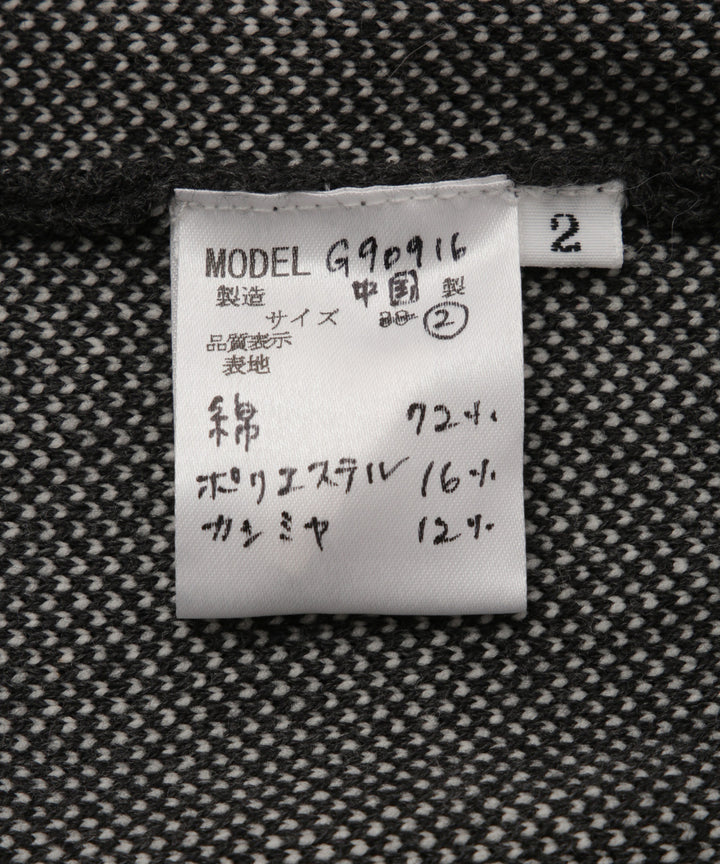 MODEL G90916
2
製造 中国 製
サイズ ②
品質表示
表地
綿 72%
ポリエステル 16%
カシミヤ 12%